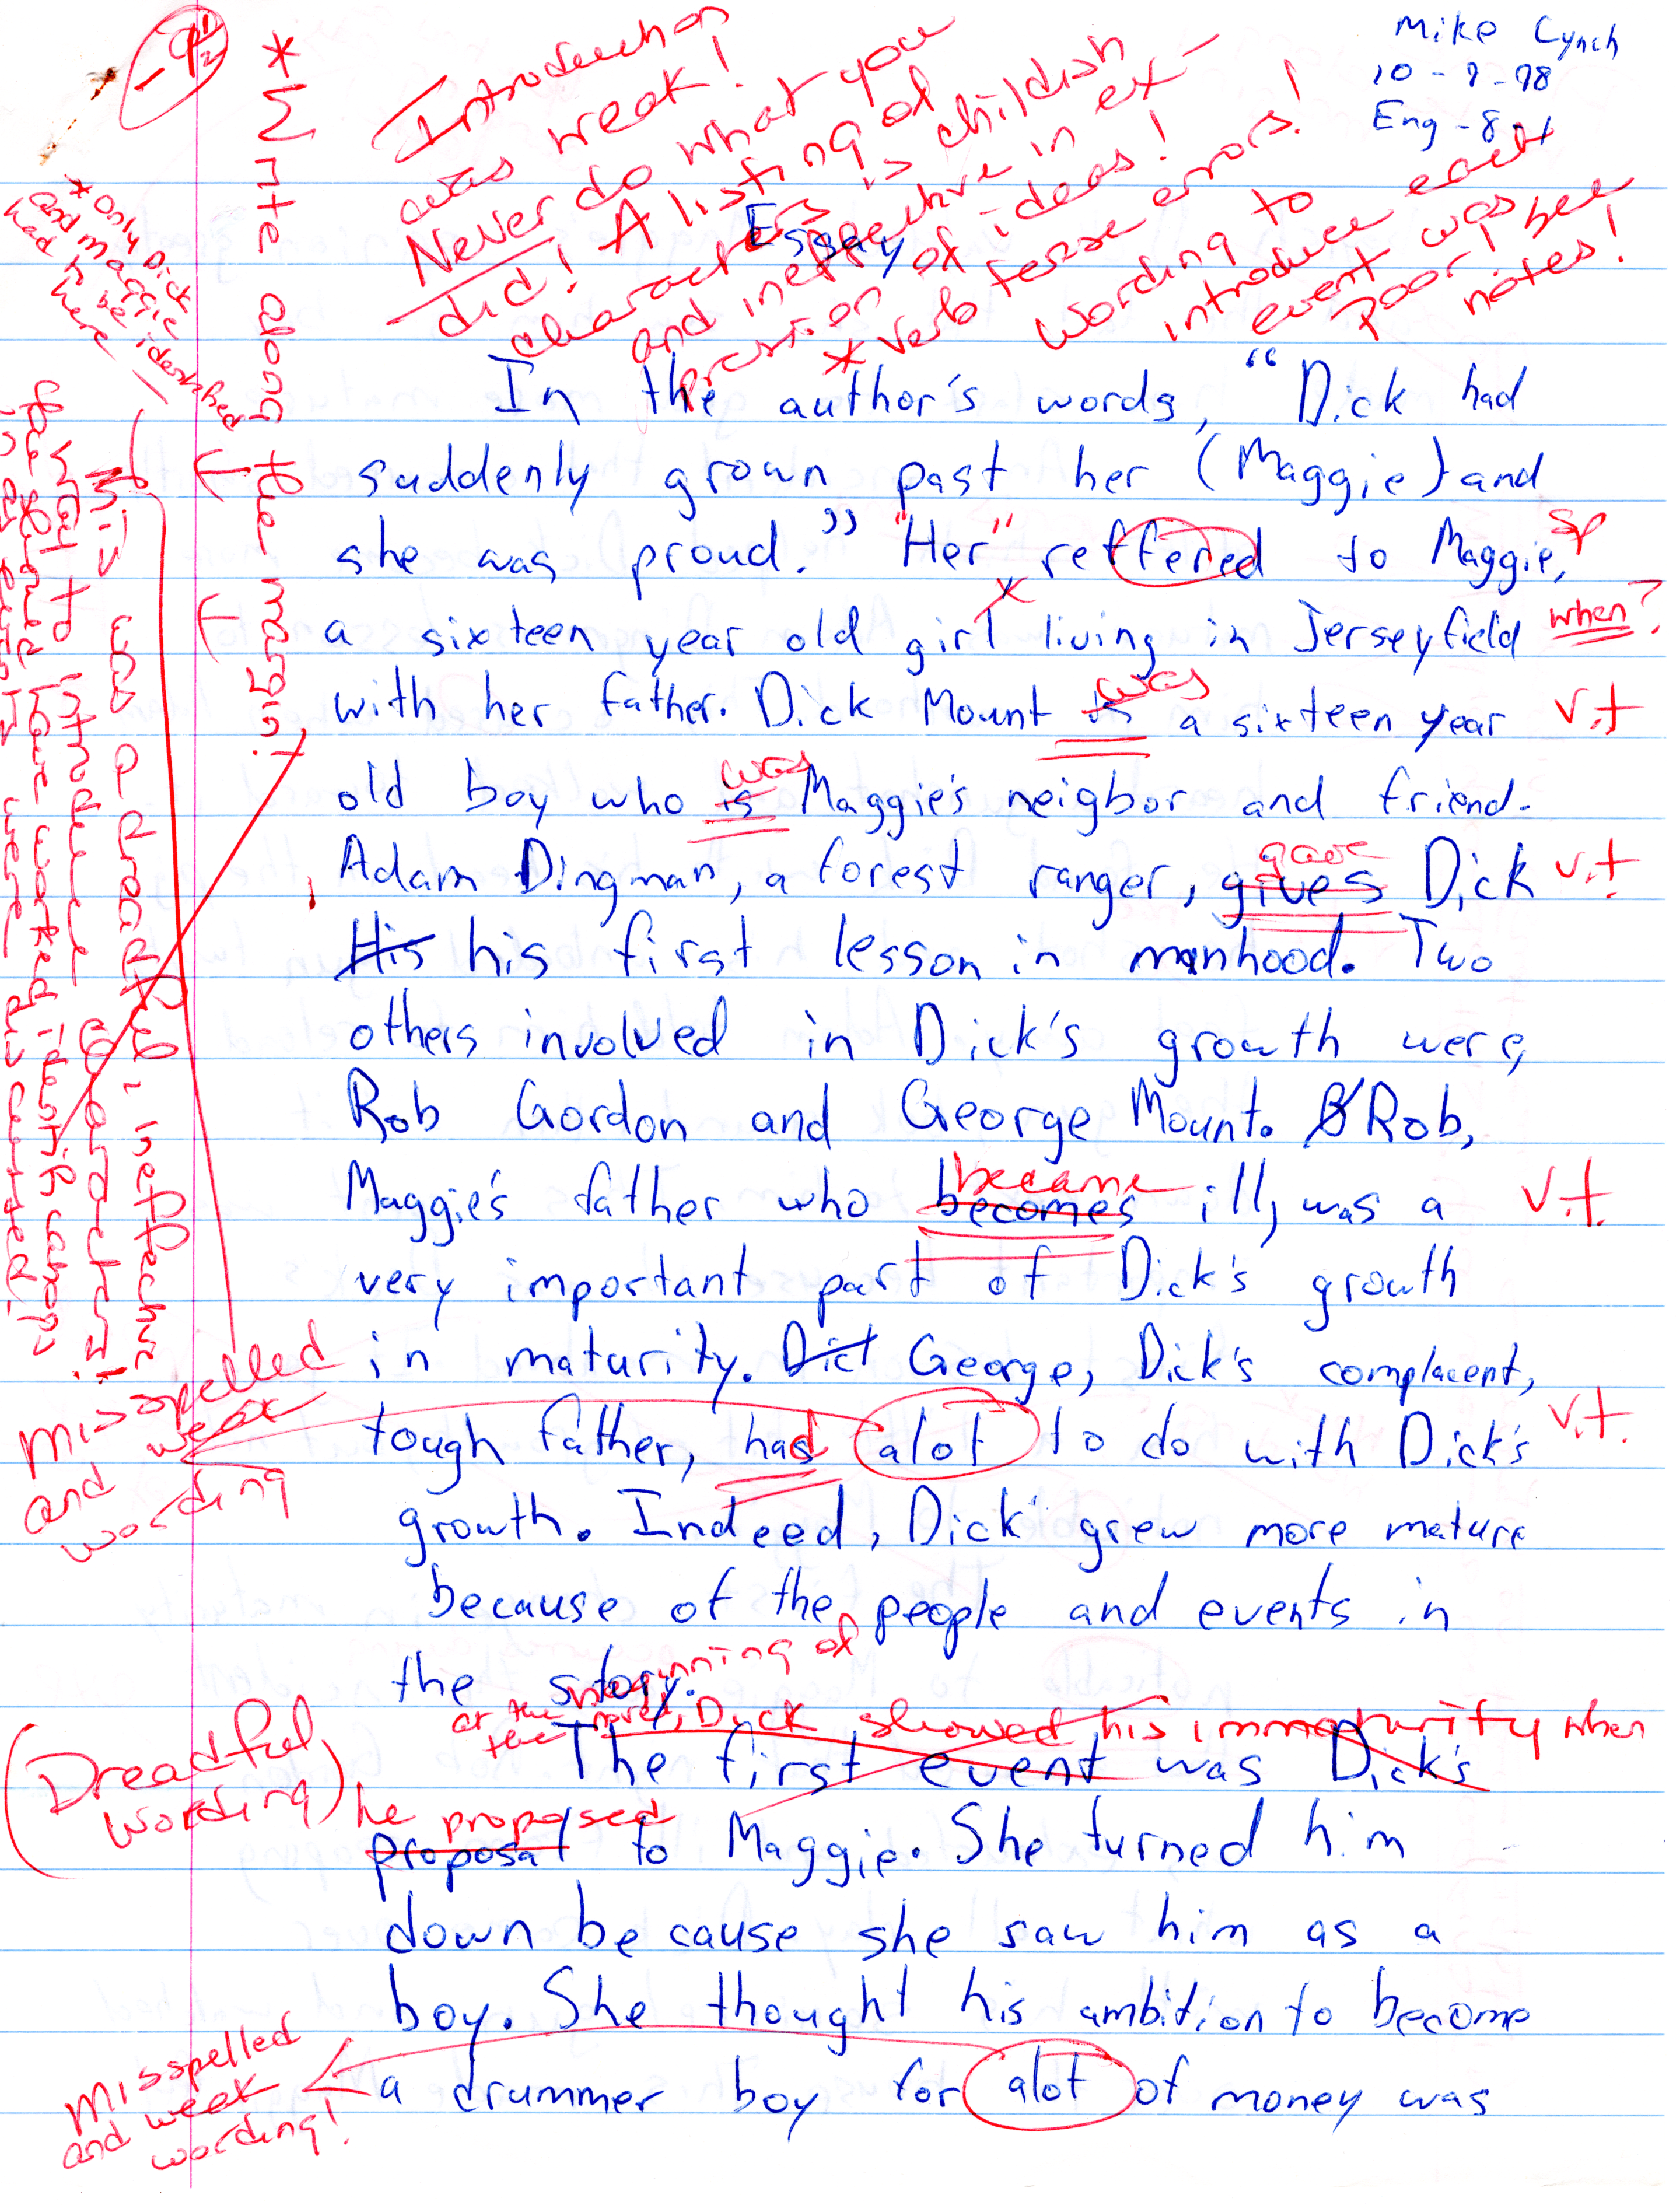 Mike Lynch
10-9-98
Eng-8-1
-9 1/2
* Write along the margin!
Introduction
was weak!
Never do what you
did! A listing of
characters is childish
and ineffective in ex-
pression of ideas!
* Verb tense errors!
Wording to
introduce each
event was
poor! See
notes!
* only Dick
and Maggie
had to be identified
here
Essay
In the author's words, "Dick had
suddenly grown past her (Maggie) and
she was proud." "Her" reffered to Maggie, sp
a sixteen year old girl living in Jerseyfield when?
with her father. Dick Mount is was a sixteen year v.t
old boy who is was Maggie's neigbor and friend.
Adam Dingman, a forest ranger, gives gave Dick v.t
His his first lesson in manhood. Two
others involved in Dick's growth were,
Rob Gordon and George Mount. Rob,
Maggie's father who becomes became ill, was a v.t.
very important part of Dick's growth
in maturity. Dict George, Dick's complacent,
tough father, had alot to do with Dick's v.t.
growth. Indeed, Dick grew more mature
because of the people and events in
the story.
This was a dreadful, ineffective
way to introduce characters!
Misspelled
and weak
wording
at the beginning of
the novel, Dick showed his immaturity when
The first event was Dick's
(Dreadful
wording)
he proposed
proposal to Maggie. She turned him
down because she saw him as a
boy. She thought his ambition to become
a drummer boy for alot of money was
Misspelled
and week
wording!